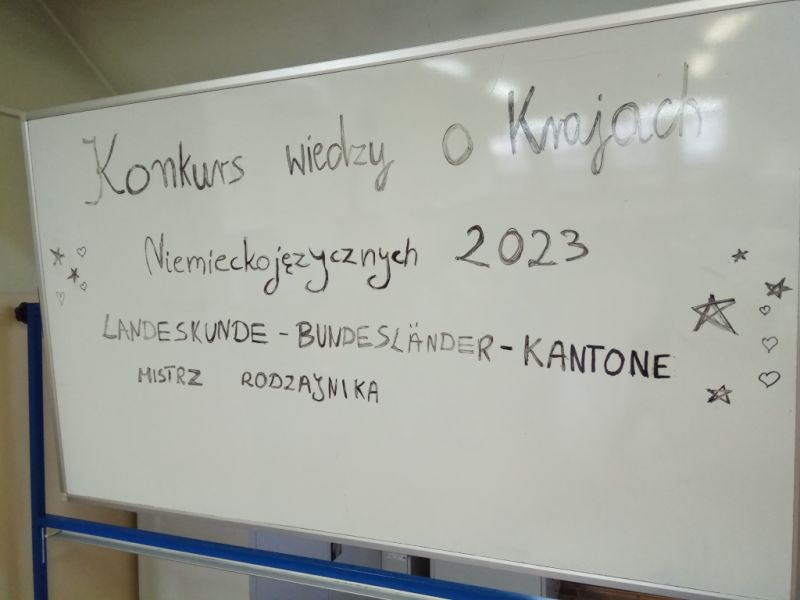 Konkurs wiedzy o Krajach
Niemieckojęzycznych 2023
LANDESKUNDE - BUNDESLÄNDER - KANTONE
MISTRZ RODZAJNIKA